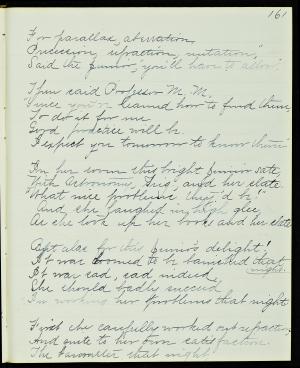 161
For parallax, aberration,
Precession, refraction, nutation,
Said the Junior, "you'll have to allow."
Then said Professor M. M.
Since you've learned how to find them,
To do it for me
Good practice will be.
I expect you tomorrow to know them
In her room this bright Junior sate
With Astronomy, and her slate.
What nice problems they'd be"
And she laughed in high glee
As she took up her book and her slate
Alas for this Junior's delight!
It was doomed to be banished that
night.
It was sad, sad indeed
She should badly succeed
In working her problems that night
First she carefully worked out refraction,
And quite to her own satisfaction.
The barometer that night